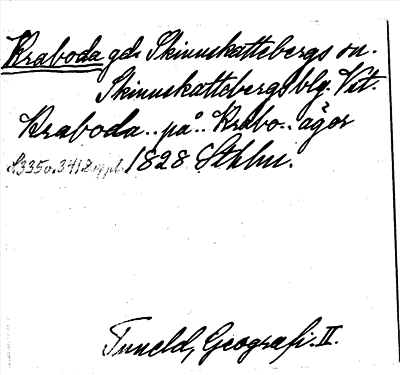 Kraboda gd. Skinnskattebergs sn.
Skinnskattebergs blg. Vst.
Kraboda.. på.. Krabo.. ägor
S.335o.341 1828 Sthlm.
Tuneld, Geografi. II.